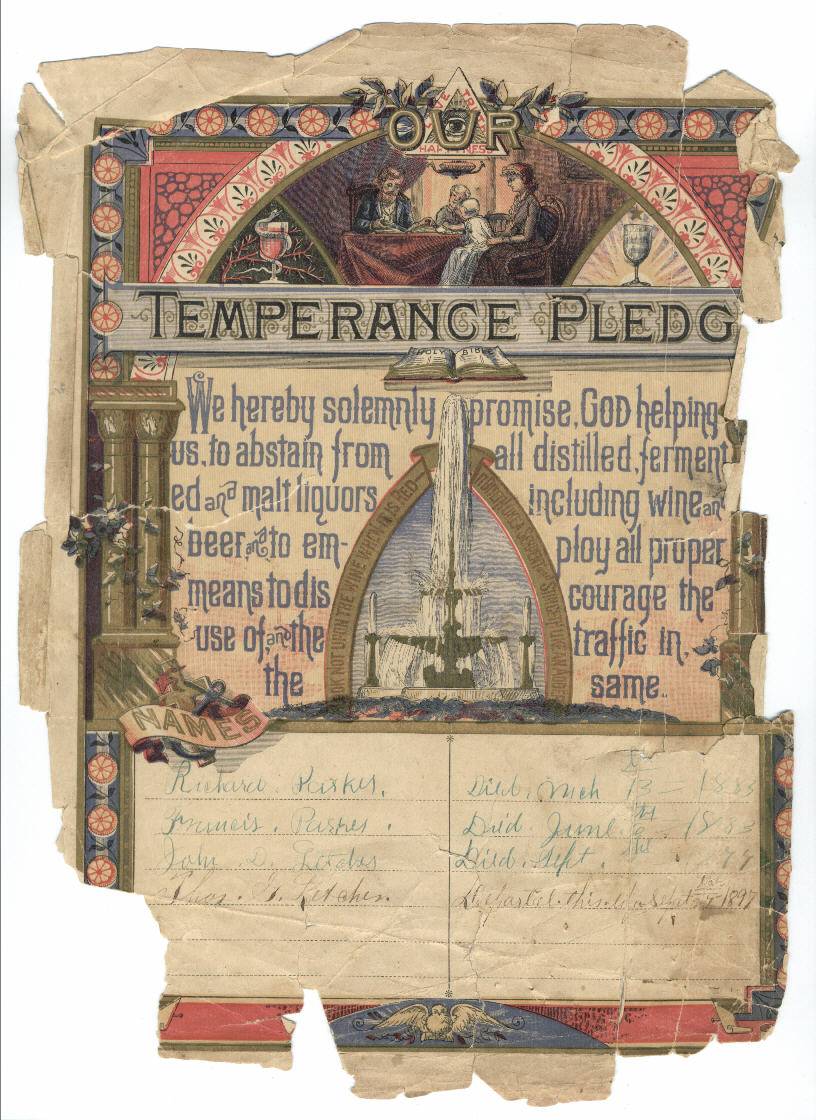 OUR
TEMPERANCE PLEDG
HOLY BIBLE
We hereby solemnly promise, GOD helping
us, to abstain from all distilled, ferment
ed and malt liquors including wine an
beer and to em- ploy all proper
means to dis courage the
use of, and the traffic in,
the same.
K NOT UPON THE WINE WHEN IT IS RED
NAMES
Richard. Died. Mch 13 - 1883
Francis. Died. June 1883
John D. Died. Sept.
Thos. G. Letcher. Departed. this. life Sept 1897